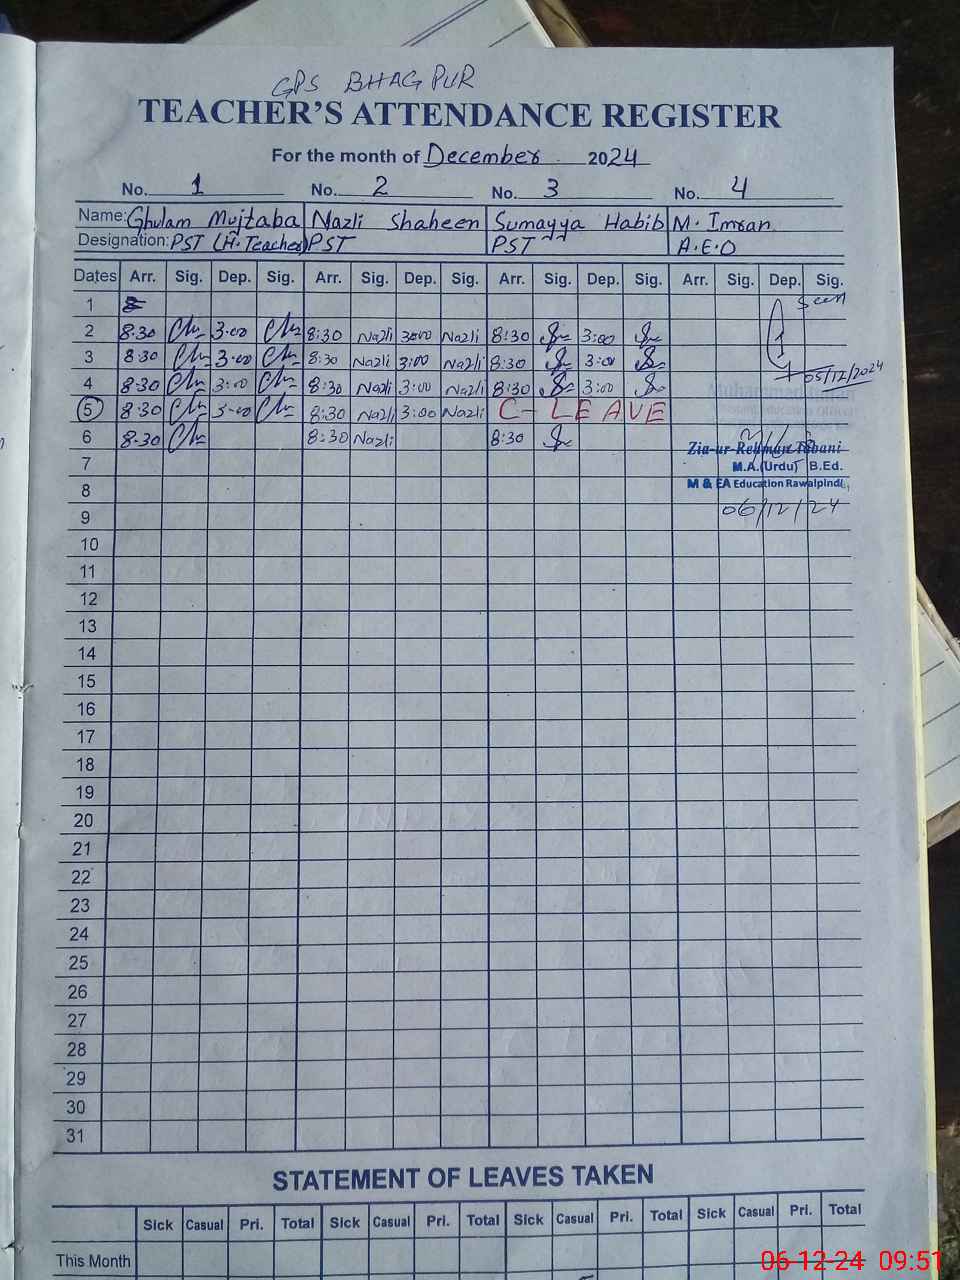 GPS BHAGPUR
TEACHER'S ATTENDANCE REGISTER
For the month of December 2024
No. 1 No. 2 No. 3 No. 4
Name: Ghulam Mujtaba Nazli Shaheen Sumayya Habib M. Imran
Designation: PST (H. Teacher) PST PST A.E.O
Dates Arr. Sig. Dep. Sig. Arr. Sig. Dep. Sig. Arr. Sig. Dep. Sig. Arr. Sig. Dep. Sig.
1 Seen
2 8.30 3.00 8:30 Nazli 3:00 Nazli 8:30 3:00
3 8:30 3.00 8:30 Nazli 3:00 Nazli 8:30 3:00
05/12/2024
4 8.30 3:00 8:30 Nazli 3:00 Nazli 8:30 3:00
5 8:30 3:00 8:30 Nazli 3:00 Nazli C-LEAVE
6 8.30 8:30 Nazli 8:30
Zia-ur-Rehman Tabani
7 M.A.(Urdu) B.Ed.
8 M & EA Education Rawalpindi
9 06/12/24
10
11
12
13
14
15
16
17
18
19
20
21
22
23
24
25
26
27
28
29
30
31
STATEMENT OF LEAVES TAKEN
Sick Casual Pri. Total Sick Casual Pri. Total Sick Casual Pri. Total Sick Casual Pri. Total
This Month
06-12-24 09:51